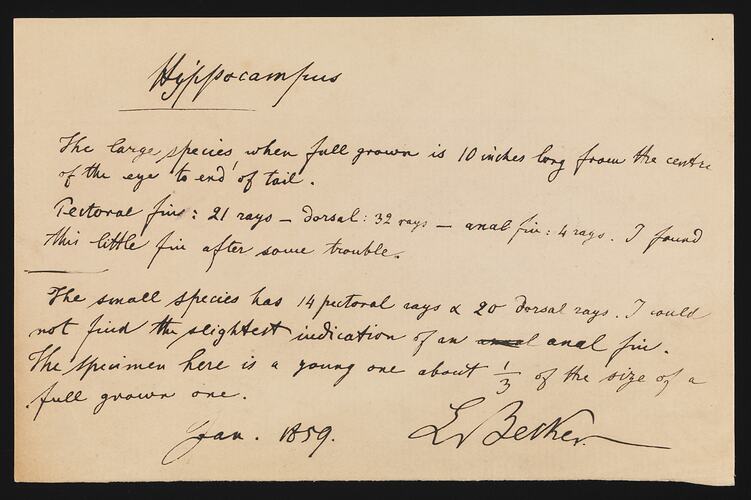 Hippocampus
The large species, when full grown is 10 inches long from the centre
of the eye to end of tail.
Pectoral fins: 21 rays — dorsal: 32 rays — anal fin: 4 rays. I found
this little fin after some trouble.
The small species has 14 pectoral rays & 20 dorsal rays. I could
not find the slightest indication of an anal fin.
The specimen here is a young one about 1/3 of the size of a
full grown one.
Jan. 1859. L Becker.